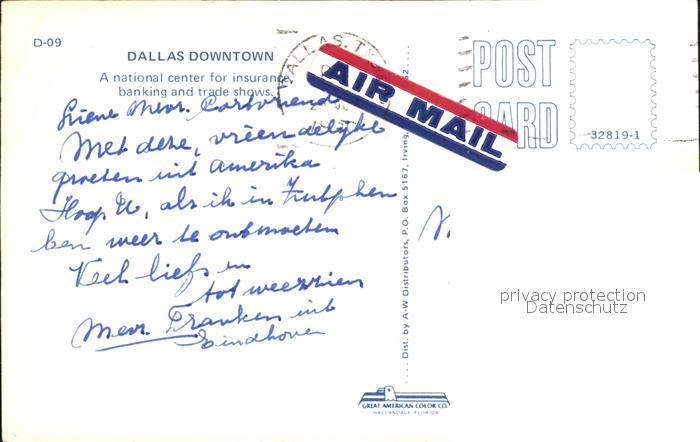 D-09
DALLAS DOWNTOWN
A national center for insurance
banking and trade shows.
DALLAS, T
AIR MAIL
POST
CARD
32819-1
Mevr.
Met deze, vriendelijke
groeten uit Amerika
Hoop U, als ik in Zutphen
ben weer te ontmoeten
Veel liefs en
tot weerzien
Mevr. Franken uit
Eindhoven
Dist. by A-W Distributors, P.O. Box 5167, Irving,
GREAT AMERICAN COLOR CO.
HALLANDALE FLORIDA
privacy protection
Datenschutz